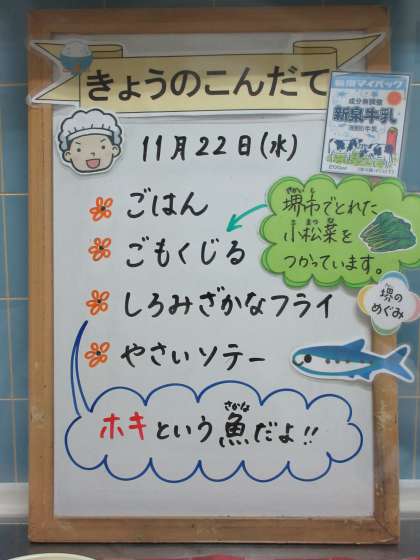 きょうのこんだて
11月22日(水)
新泉牛乳
ごはん
ごもくじる
しろみざかなフライ
やさいソテー
堺市でとれた
小松菜を
つかっています。
堺の
めぐみ
ホキという魚だよ!!